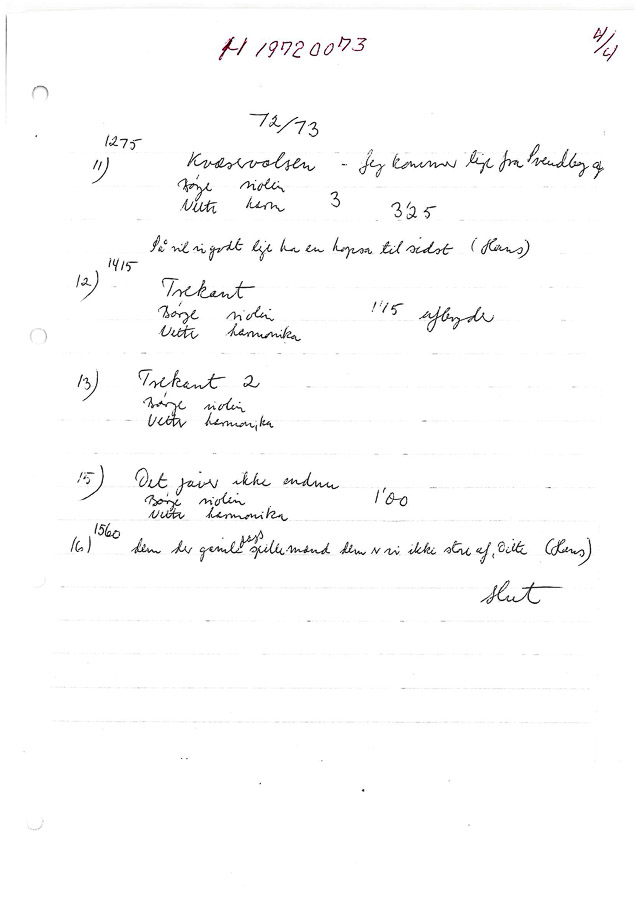 H 19720073
4/4
72/73
1275
11) Kvæsevalsen - Jeg kommer lige fra Svendborg af
Börge violin
Vette harm 3 3'25
Så vil vi godt lige ha en hopsa til sidst (Hans)
1415
12) Trekant
Börge violin 1'15 afbryde
Vette harmonika
13) Trekant 2
Börge violin
Vette harmonika
15) Det ikke endnu
Börge violin 1'00
Vette harmonika
1560
16) dem der gamle spillemænd dem er vi ikke af, Ditte (Hans)
Slut